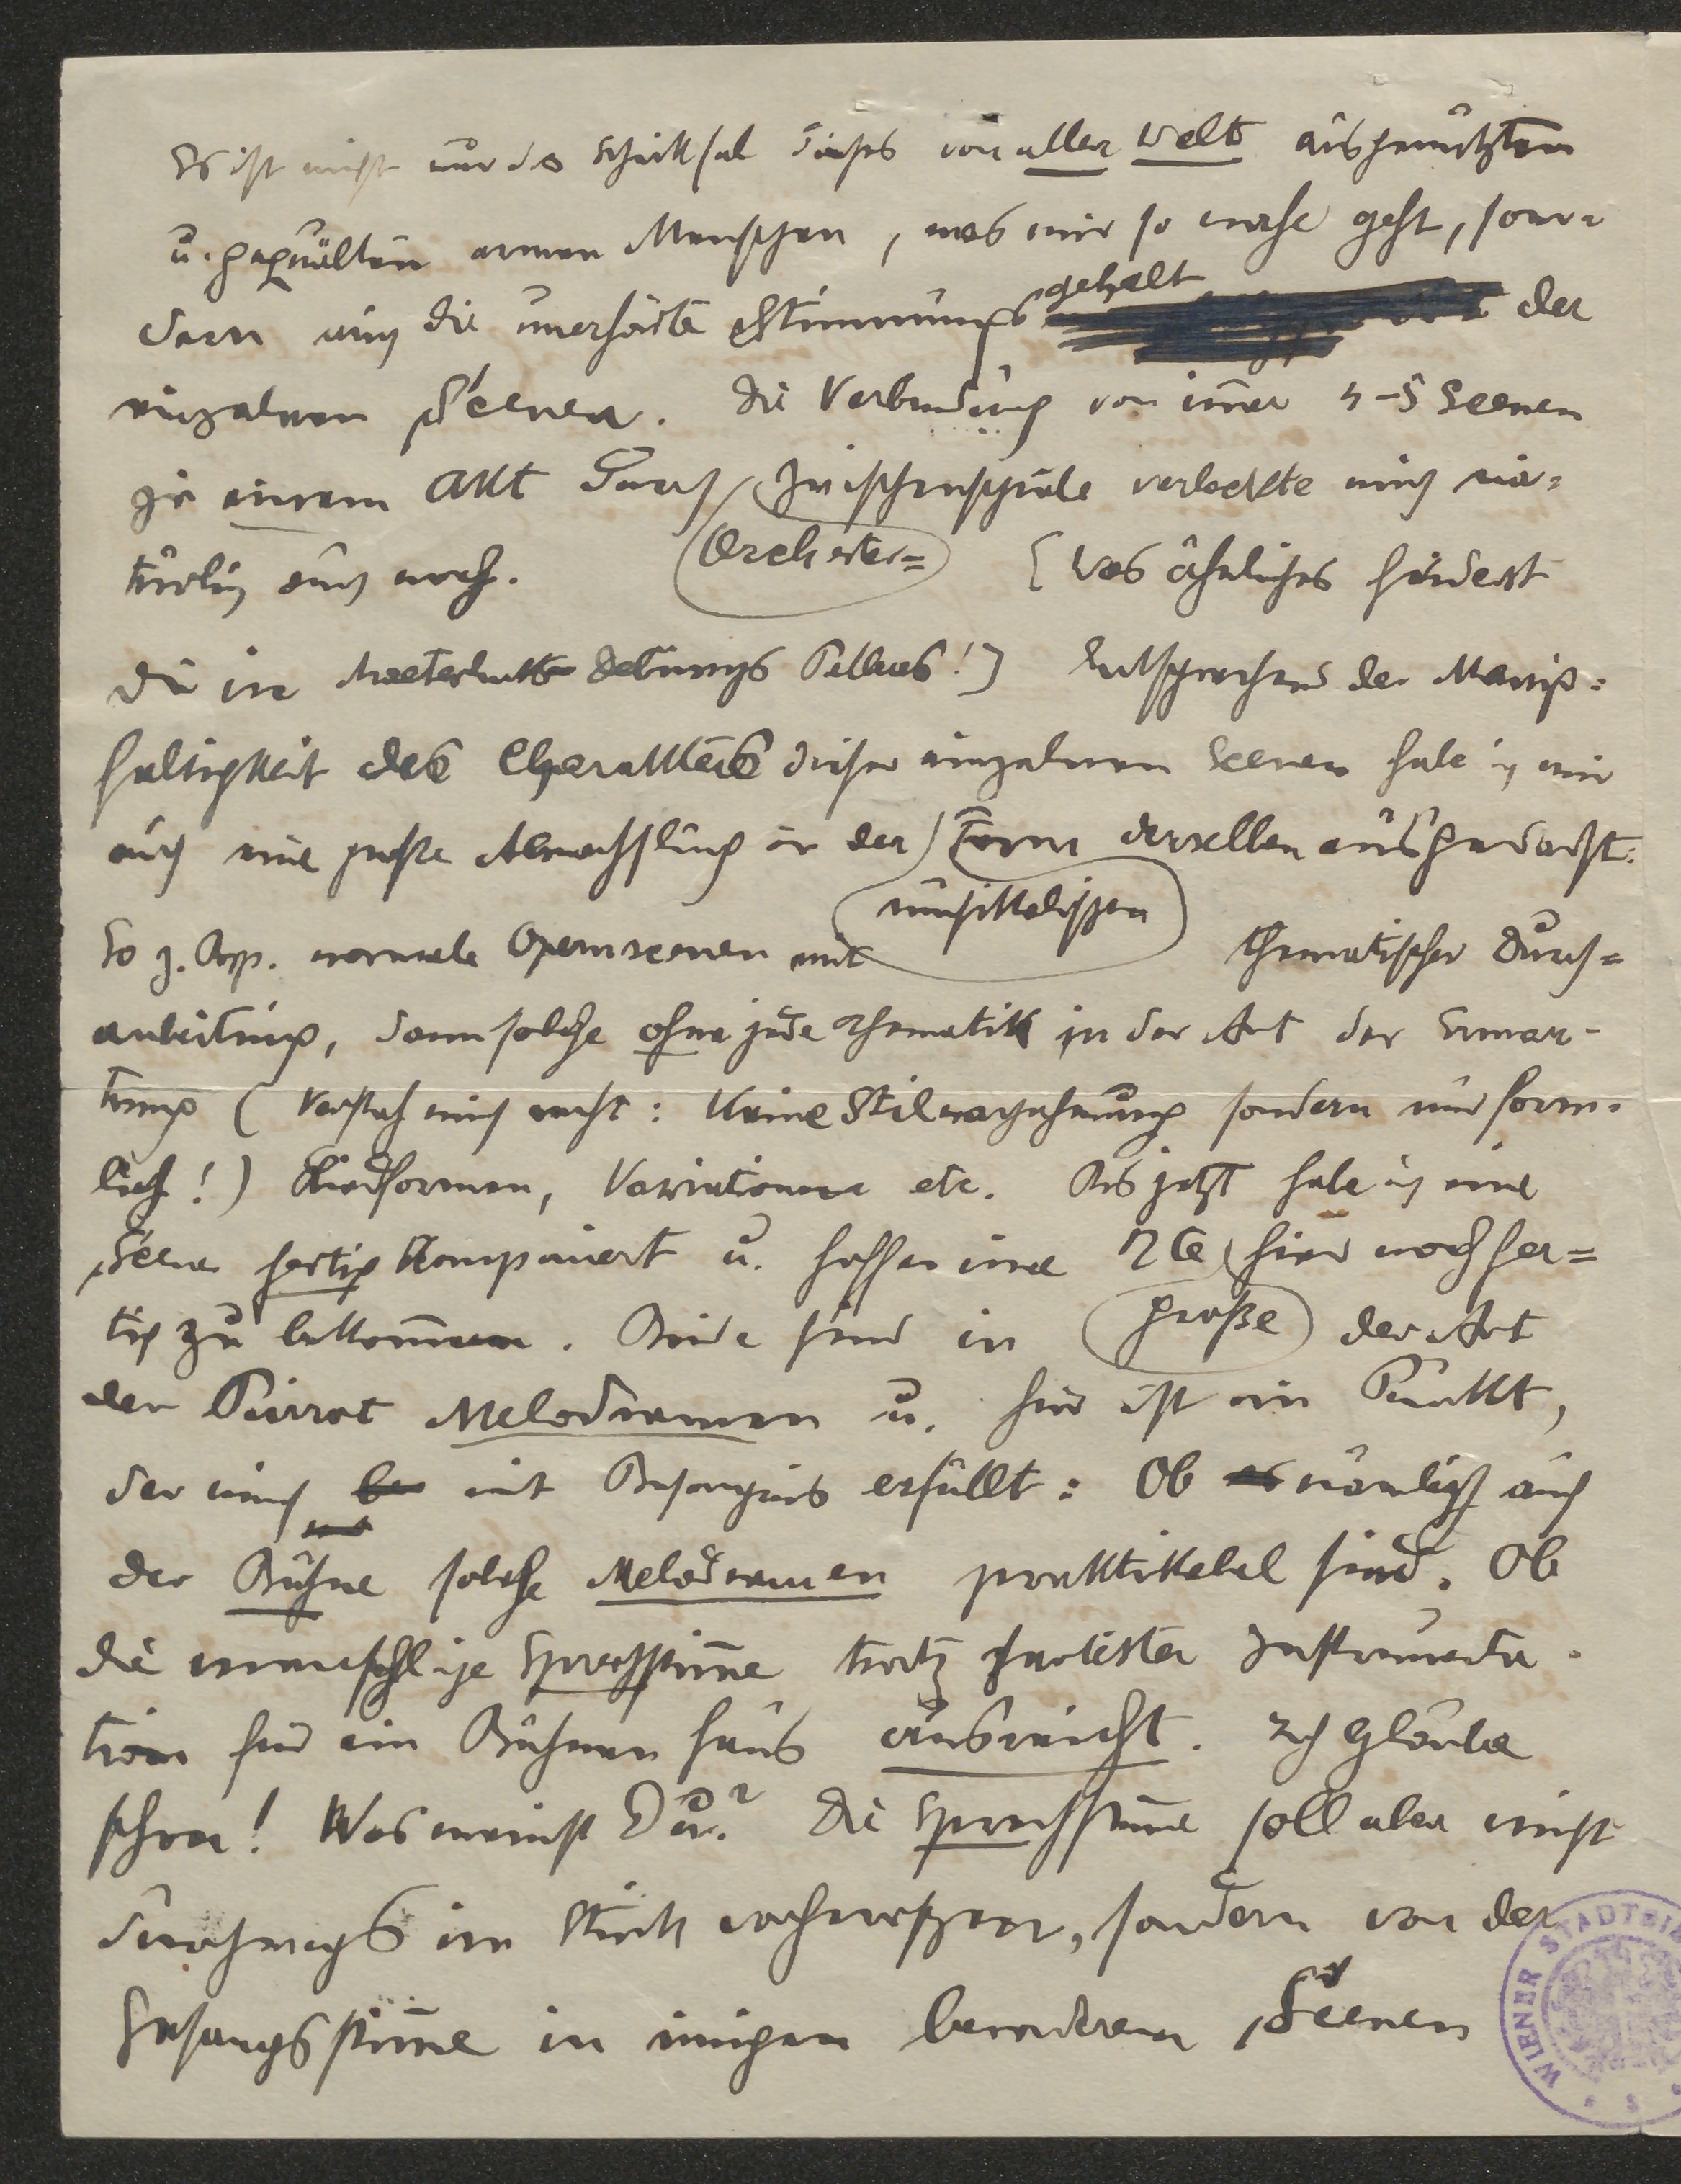 Es ist nicht nur das Schicksal dieses von aller Welt ausgenützten
u. gequälten armen Menschen, was mir so nahe geht, son=
dern auch die unerhörte Stimmungsgehalt der
einzelnen Scenen. Die Verbindung von immer 4-5 Scenen
zu einem Akt durch Orchester= Zwischenspiele verlockte mich na=
türlich auch noch. [Was ähnliches findest
Du in Maeterlinck Debussys Pelleas!] Entsprechend der Manig=
faltigkeit des Charakters dieser einzelnen Scenen habe ich mir
auch eine große Abwechslung in der musikalischen Form derselben ausgedacht.
So z. Bsp. normale Opernscenen mit thematischer Durch=
arbeitung, dann solche ohne jede Thematik in der Art der Erwar-
tung (Versteh mich recht: Keine Stilnachahmung sondern nur form=
lich!) Liedformen, Variationen etc. Bis jetzt habe ich eine
Scene fertig komponiert u. hoffe eine 2te große hier noch fer=
tig zu bekommen. Beide sind in der Art
der Pierrot Melodramen u. hier ist ein Punkt,
der mich mit Besorgnis erfüllt: Ob nämlich auf
der Bühne solche Melodramen praktikabel sind. Ob
die menschliche Sprechstimme trotz zartester Instrumenta=
tion für ein Bühnenhaus ausreicht. Ich glaube
schon! Was meinst Du? Die Sprechstimme soll aber nicht
durchwegs im Stück vorherrschen, sondern von der
Gesangsstimme in einigen besonderen Scenen
WIENER STADTBI